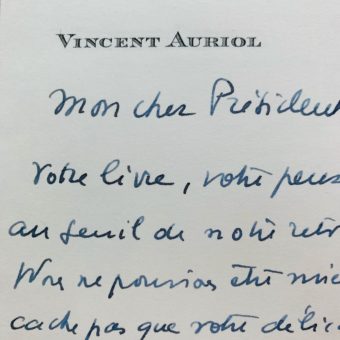 VINCENT AURIOL
Mon cher Président
Votre livre, votre pens
au seuil de notre retr
Nne ne pouvions être mie
cache pas que votre délica